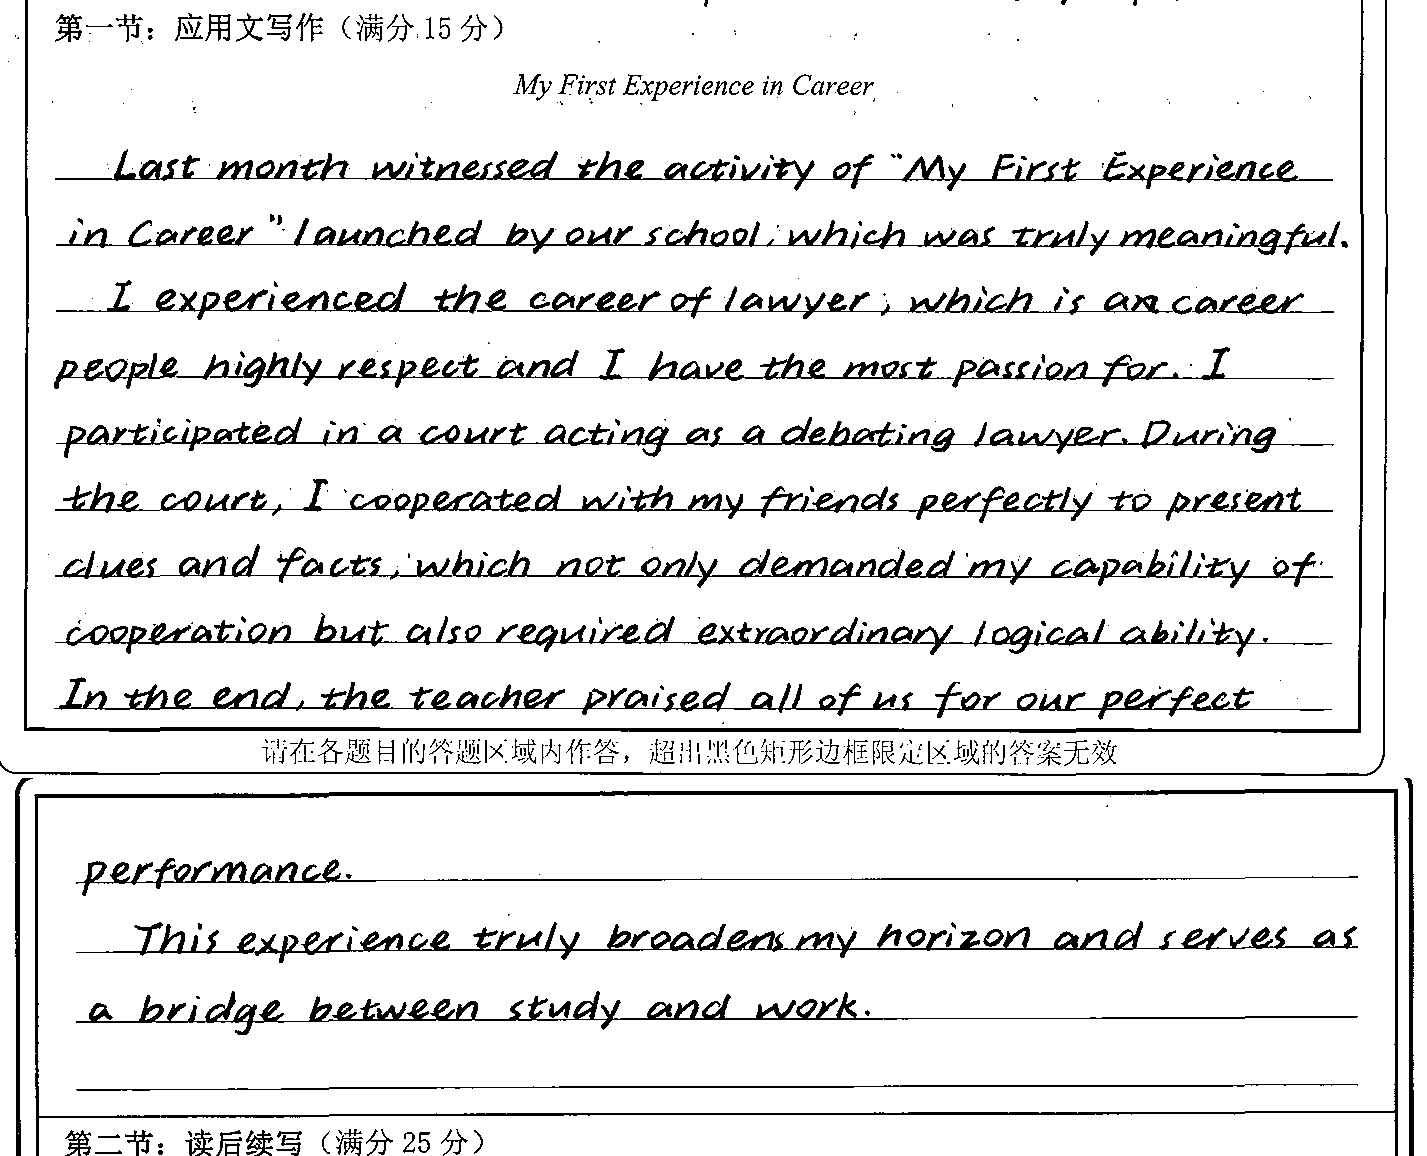 第一节：应用文写作（满分 15 分）
My First Experience in Career
Last month witnessed the activity of "My First Experience
in Career" launched by our school, which was truly meaningful.
I experienced the career of lawyer, which is an career
people highly respect and I have the most passion for. I
participated in a court acting as a debating lawyer. During
the court, I cooperated with my friends perfectly to present
clues and facts, which not only demanded my capability of
cooperation but also required extraordinary logical ability.
In the end, the teacher praised all of us for our perfect
请在各题目的答题区域内作答，超出黑色矩形边框限定区域的答案无效
performance.
This experience truly broadens my horizon and serves as
a bridge between study and work.
第二节：读后续写（满分 25 分）